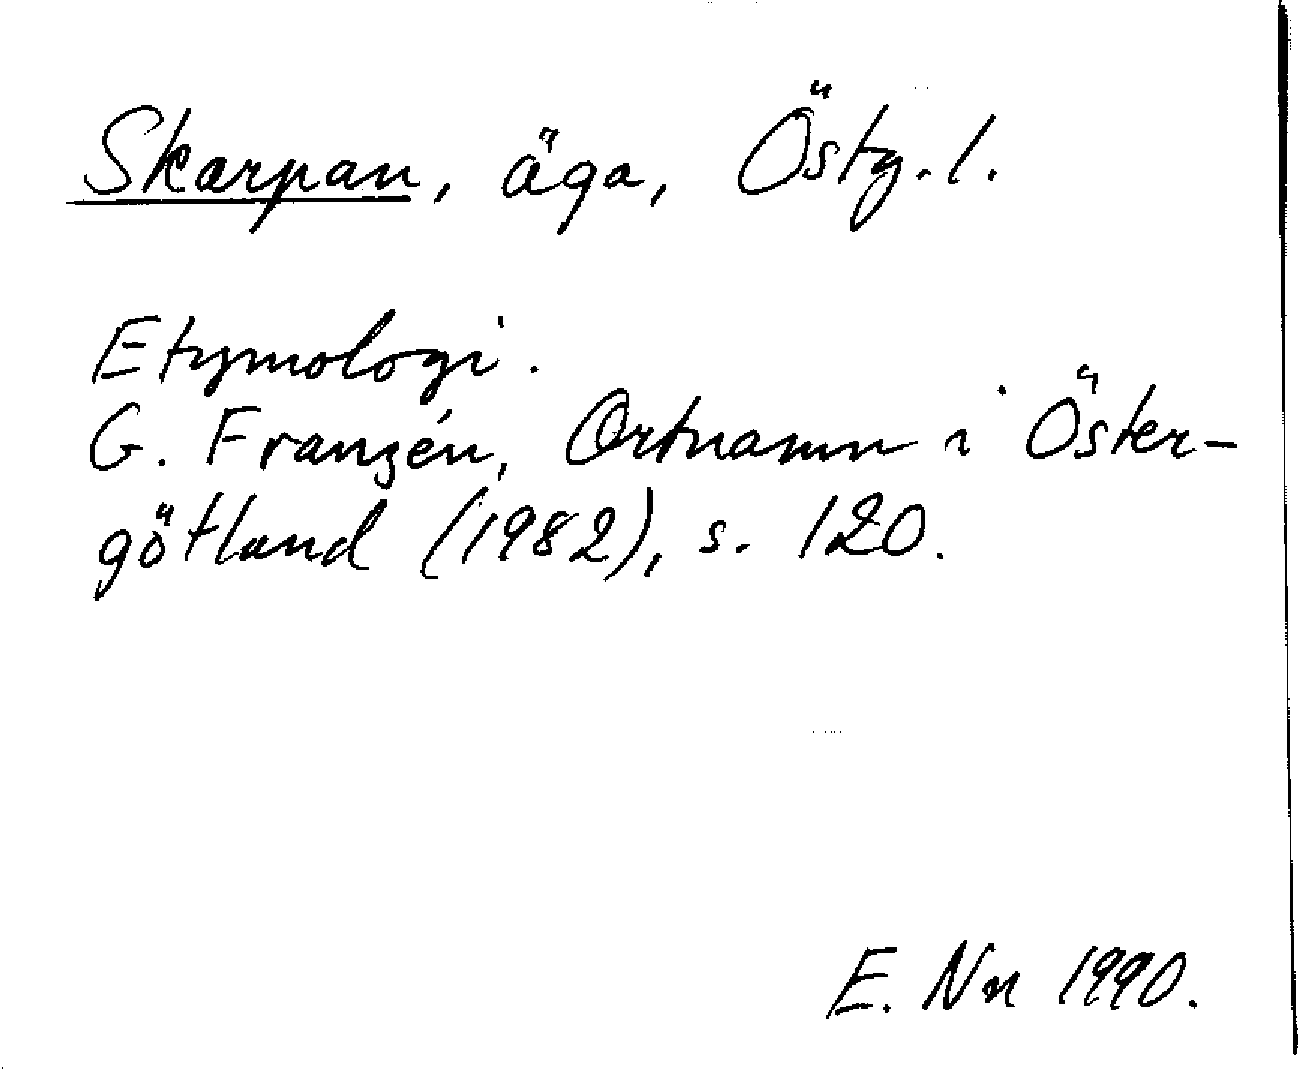 Skarpan, äga, Östg. l.
Etymologi.
G. Franzén, Ortnamn i Öster-
götland (1982), s. 120.
E. Nn 1990.